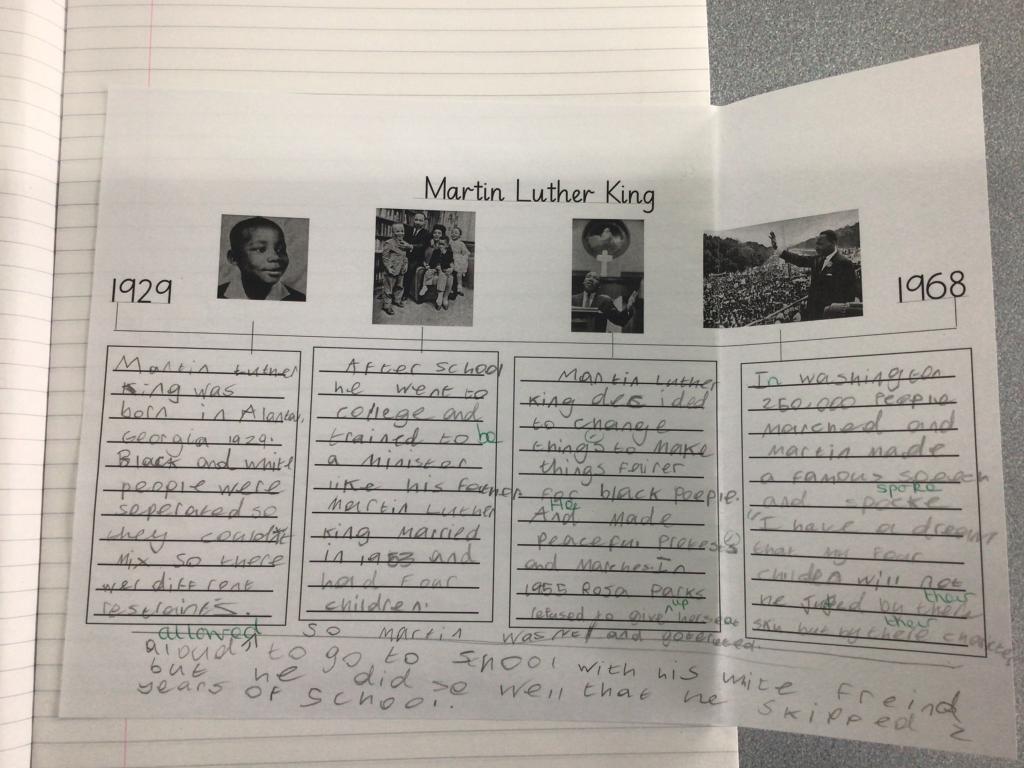 Martin Luther King
1929
1968
Martin Luther
King was
born in Alantar,
Georgia 1929.
Black and white
people were
seperated so
they couldn't
mix so there
wer different
After school
he went to
college and
trained to be
a minister
like his father
Martin Luther
King married
in 1953 and
had four
children.
Martin Luther
King
to change
things to make
things fairer
for black People.
And Made
Peaceful Protests
and Marches In
1955 Rosa Parks
refused to give up her seat
and
In washington
250.000 People
marched and
martin made
a famous speech
spoke
and
"I have a dream
that my Four
children will not
their
be by there
their
skin but by there
so martin was not
allowed
aloud to go to school with his wite freind
but he did so well that he skipped 2
years of school.